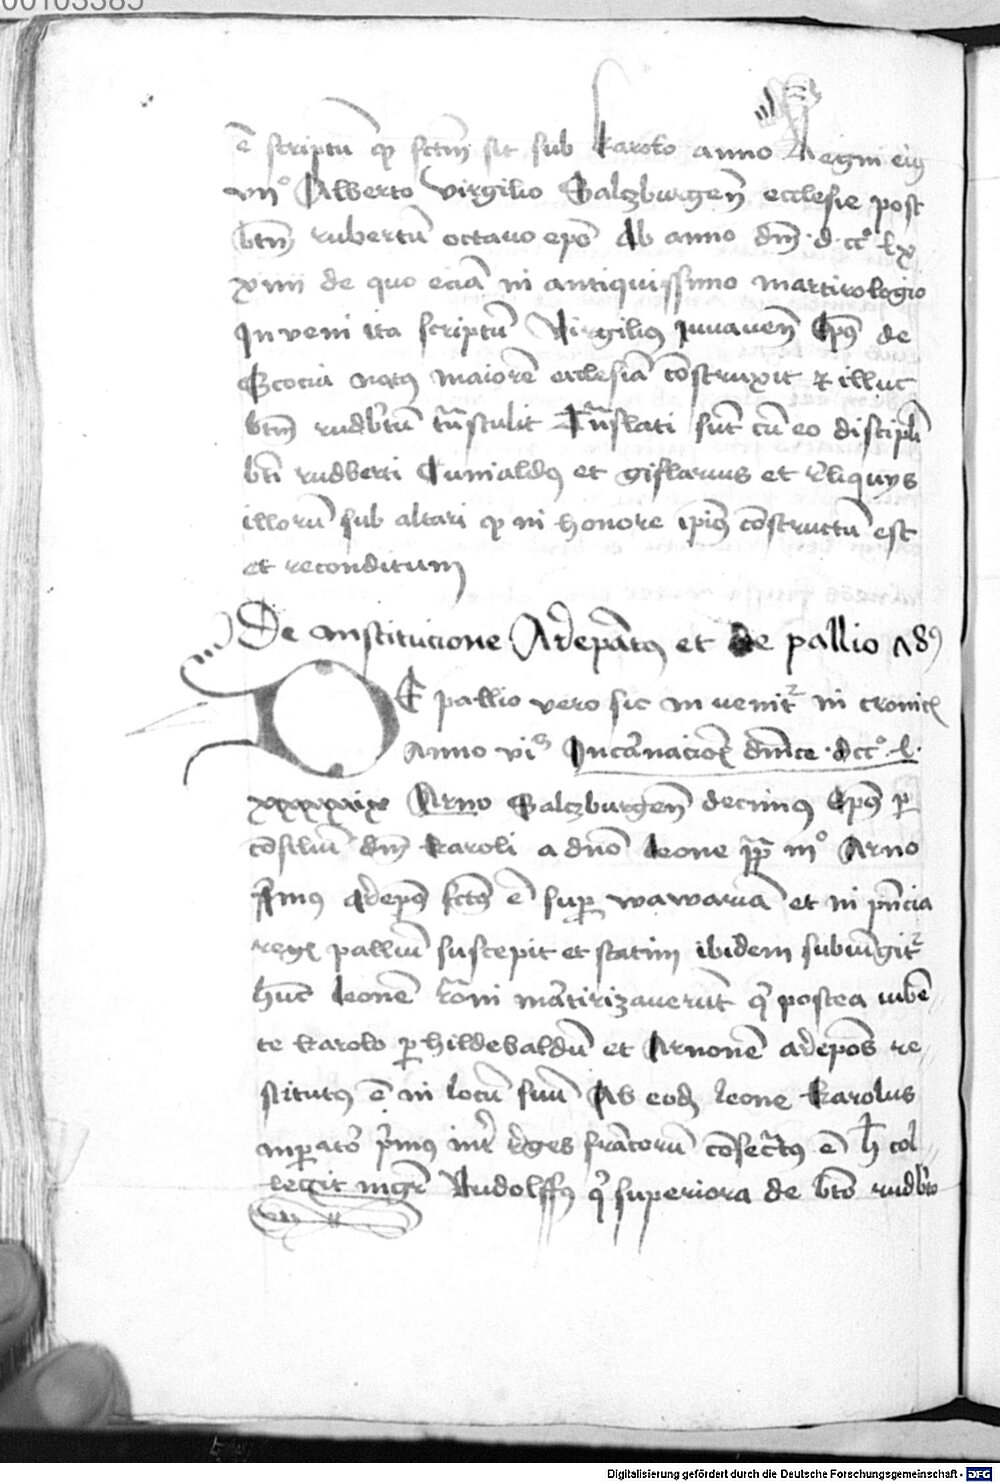 00103385
ē scriptū qp̄ fctm̄ sit sub karolo anno Regni eiꝯ
viiº Alberto virgilio Salczburgeñ ecclesie post
btm̄ rubertū octauo epō Ab anno dm̄ · d · ccº · lx
xiiii de quo eciā in antiquissimo martirologio
Inveni ita scriptū Virgiliꝯ Juuaueñ Epꝯ de
Scocia natꝯ maiorē ecclesiā cōstruxit et illuc
btm̄ rudbtū trāstulit Trāslati sūt cū eo discipli
bti rudberti Cunialdꝯ et gislarius et reliquys
illorū sub altari qp̄ in honore ipiꝯ cōstructū est
et reconditum
De institucione Ardiepātꝯ et de pallio 18ꝯ
DE pallio vero sic inuenitr in cronicꝭ
Anno vio Incarnacioꝭ dmīce · dccº · l ·
xxxxxix Arno Salczburgeñ decimꝯ Epꝯ p̲
cōsiliū dm̄ karoli a dnō leone pp̄ iiiº Arno
p̄mꝯ ardiepꝯ fctꝯ ē sup̲ wawariā et in pn̄cia
regꝭ palliū suscepit et statim ibidem subiūgitr
hūc leonē rōni martirizauerūt qꝫ postea iubē
te karolo p̲ hildebaldū et Arnonē ardiepōs re
stitutꝯ ē in locū suū Ab eodꝫ leone karolus
imp̲ator p̄mꝯ inter reges francorū cōsecratꝯ ē h̄ col
legit mgr̄ Rudolffꝯ qꝫ superiora de btō rudbto
Digitalisierung gefördert durch die Deutsche Forschungsgemeinschaft - DFG